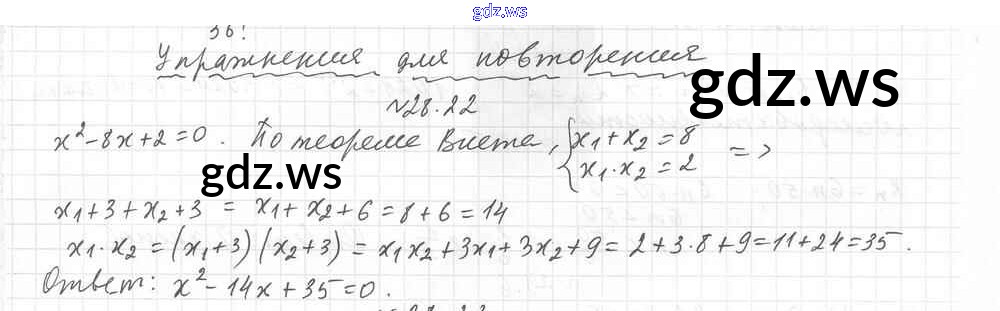 gdz.ws
36!
Упражнения для повторения
gdz.ws
№28.22
x²-8x+2=0. По теореме Виета, {x₁+x₂=8 x₁·x₂=2 =>
gdz.ws
x₁+3+x₂+3 = x₁+x₂+6=8+6=14
x₁·x₂=(x₁+3)(x₂+3)=x₁x₂+3x₁+3x₂+9=2+3·8+9=11+24=35.
Ответ: x²-14x+35=0.